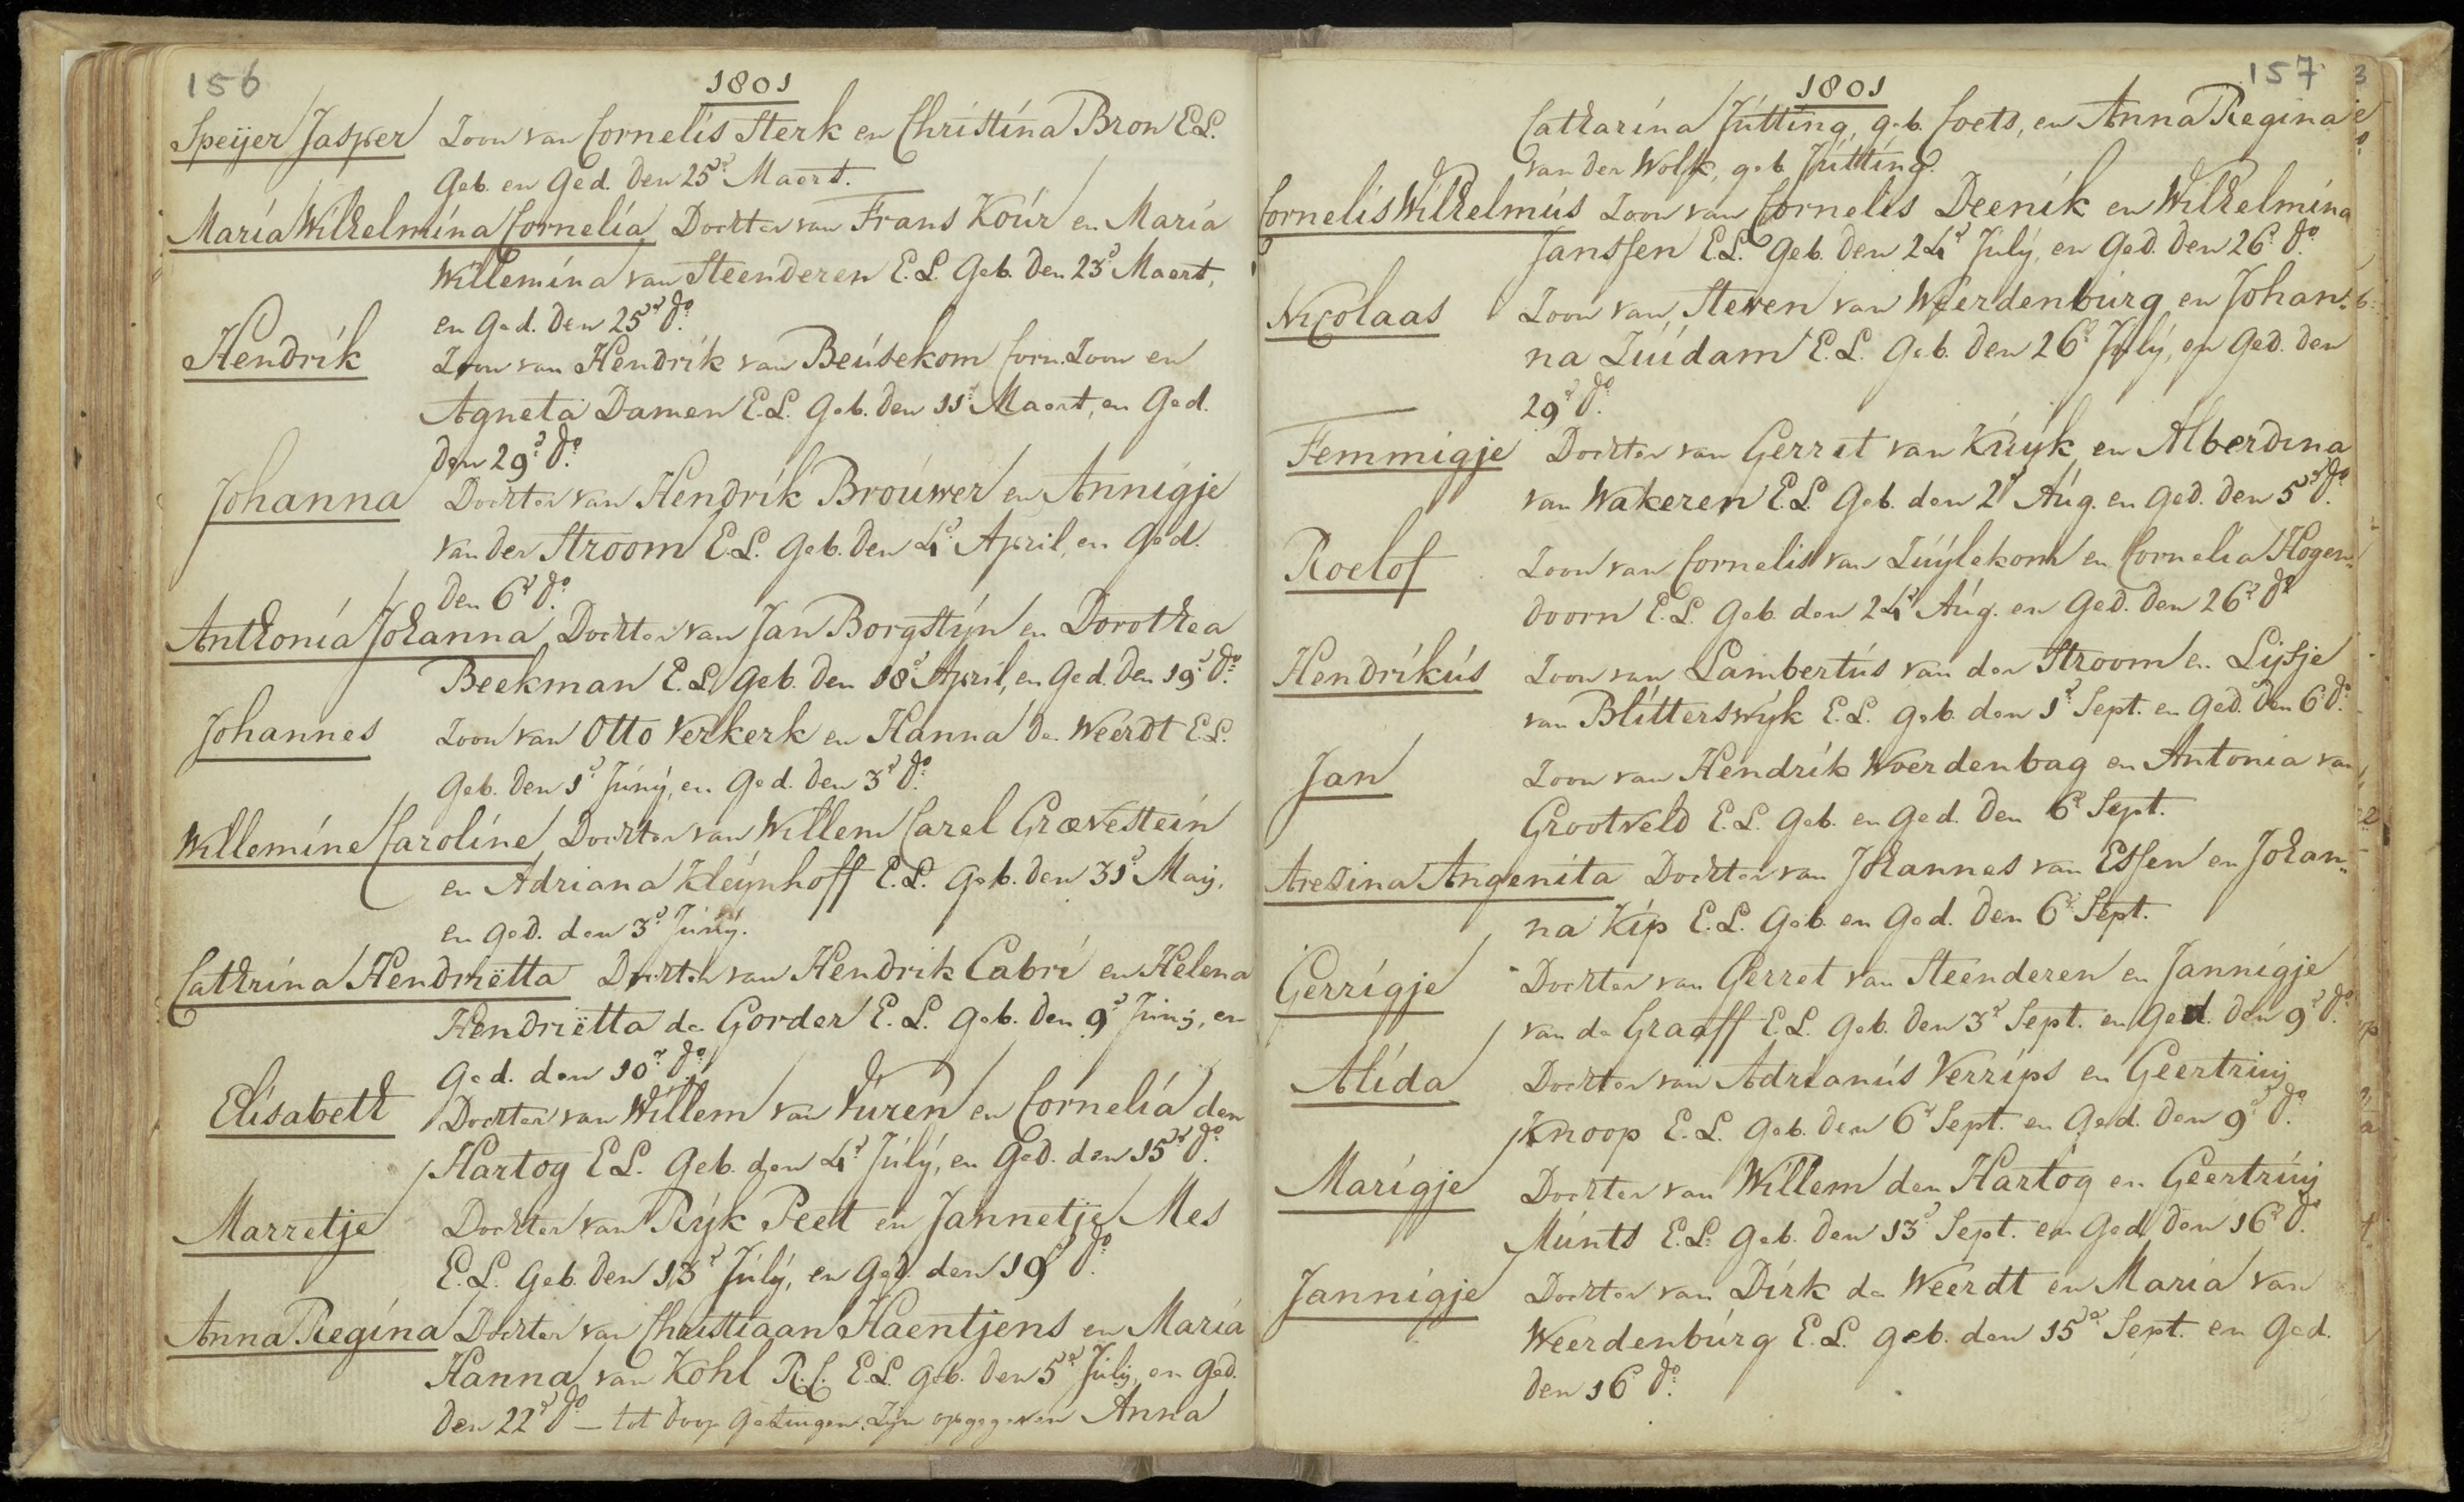 156
1801
Speijer Jasper Zoon van Cornelis Sterk en Christina Bron E.L.
Geb. en Ged. den 25.e Maert.
Maria Wilhelmina Cornelia Dochter van Frans Koúr en Maria
Willemina van Steenderen E.L. Geb. den 23.e Maert,
en Ged. den 25.e do.
Hendrik Zoon van Hendrik van Beúsekom Corn. Zoon en
Agneta Damen E.L. Geb. den 11.e Maert, en Ged.
den 29.e do.
Johanna Dochter van Hendrik Broúwer en Annigje
van der Stroom E.L. Geb. den 4.e April, en Ged.
den 6.e do.
Anthonia Johanna Dochter van Jan Borgstijn en Dorothea
Beekman E.L. Geb. den 18.e April, en Ged. den 19.e do.
Johannes Zoon van Otto Verkerk en Hanna de Weerdt E.L.
Geb. den 1.e Júnij, en Ged. den 3.e do.
Willemine Caroline Dochter van Willem Carel Grævestein
en Adriana Kleijnhoff E.L. Geb. den 31.e Maij,
en Ged. den 3.e Júnij.
Cathrina Hendriëtta Dochter van Hendrik Cabri en Helena
Hendriëtta de Gorder E.L. Geb. den 9.e Júnij, en
Ged. den 10.e do.
Elisabeth Dochter van Willem van Vúren en Cornelia den
Hartog E.L. Geb. den 4.e Júlij, en Ged. den 15.e do.
Marretje Dochter van Rijk Peet en Jannetje Mes
E.L. Geb. den 13.e Júlij, en Ged. den 19.e do.
Anna Regina Dochter van Christiaan Haentjens en Maria
Hanna van Kohl R.C. E.L. Geb. den 5.e Júlij, en Ged.
den 22.e do. — tot doop Getúigen Zijn opgegeven Anna
157
1801
Catharina Jútting, geb. Coets, en Anna Regina
van der Wolk, geb. Jútting.
Cornelis Wilhelmús Zoon van Cornelis Deenik en Wilhelmina
Janssen E.L. Geb. den 24.e Júlij, en Ged. den 26.e do.
Nicolaas Zoon van Steven van Weerdenbúrg en Johan-
na Zúidam E.L. Geb. den 26.e Júlij, en Ged. den
29.e do.
Femmigje Dochter van Gerret van Kúijk en Alberdina
van Wakeren E.L. Geb. den 2.e Aúg. en Ged. den 5.e do.
Roelof Zoon van Cornelis van Zúijlekom en Cornelia Hogen-
doorn E.L. Geb. den 24.e Aúg. en Ged. den 26.e do.
Hendrikús Zoon van Lambertús van der Stroom en Lijsje
van Blitterswijk E.L. Geb. den 1.e Sept. en Ged. den 6.e do.
Jan Zoon van Hendrik Woerdenbag en Antonia van
Grootveld E.L. Geb. en Ged. den 6.e Sept.
Aresina Angenita Dochter van Johannes van Essen en Johan-
na Kip E.L. Geb. en Ged. den 6.e Sept.
Gerrigje Dochter van Gerret van Steenderen en Jannigje
van de Graaff E.L. Geb. den 3.e Sept. en Ged. den 9.e do.
Alida Dochter van Adrianús Verrips en Geertrúij
Knoop E.L. Geb. den 6.e Sept. en Ged. den 9.e do.
Marigje Dochter van Willem den Hartog en Geertrúij
Múnts E.L. Geb. den 13.e Sept. en Ged. den 16.e do.
Jannigje Dochter van Dirk de Weerdt en Maria van
Weerdenbúrg E.L. Geb. den 15.e Sept. en Ged.
den 16.e do.